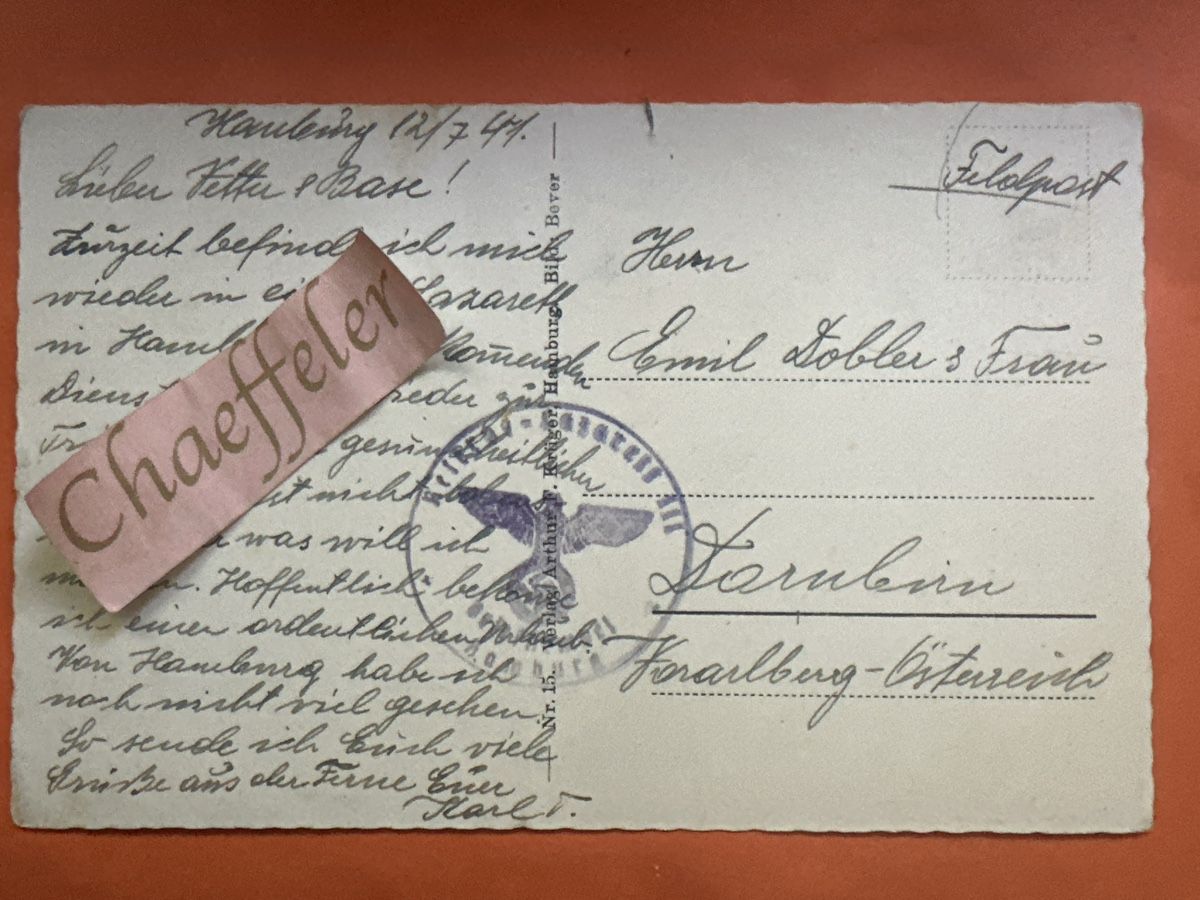 Hamburg 12/7 41.
Lieber Vetter & Base!
Zurzeit befinde ich mich
wieder in Lazarett
in kommenden
wieder zur
gesundheitlicher
nicht
was will ich
Hoffentlich bekomm
ich einen ordentlichen Urlaub.
Von Hamburg habe ich
noch nicht viel gesehen.
So sende ich Euch viele
Grüße aus der Ferne Euer
Karl T.
Chaeffeler
Nr. 15. Verlag Arthur F. Krüger, Hamburg. Bild: Bever
Lazarett III
Hamburg
Feldpost
Herrn
Emil Dobler & Frau
Dornbirn
Vorarlberg-Österreich